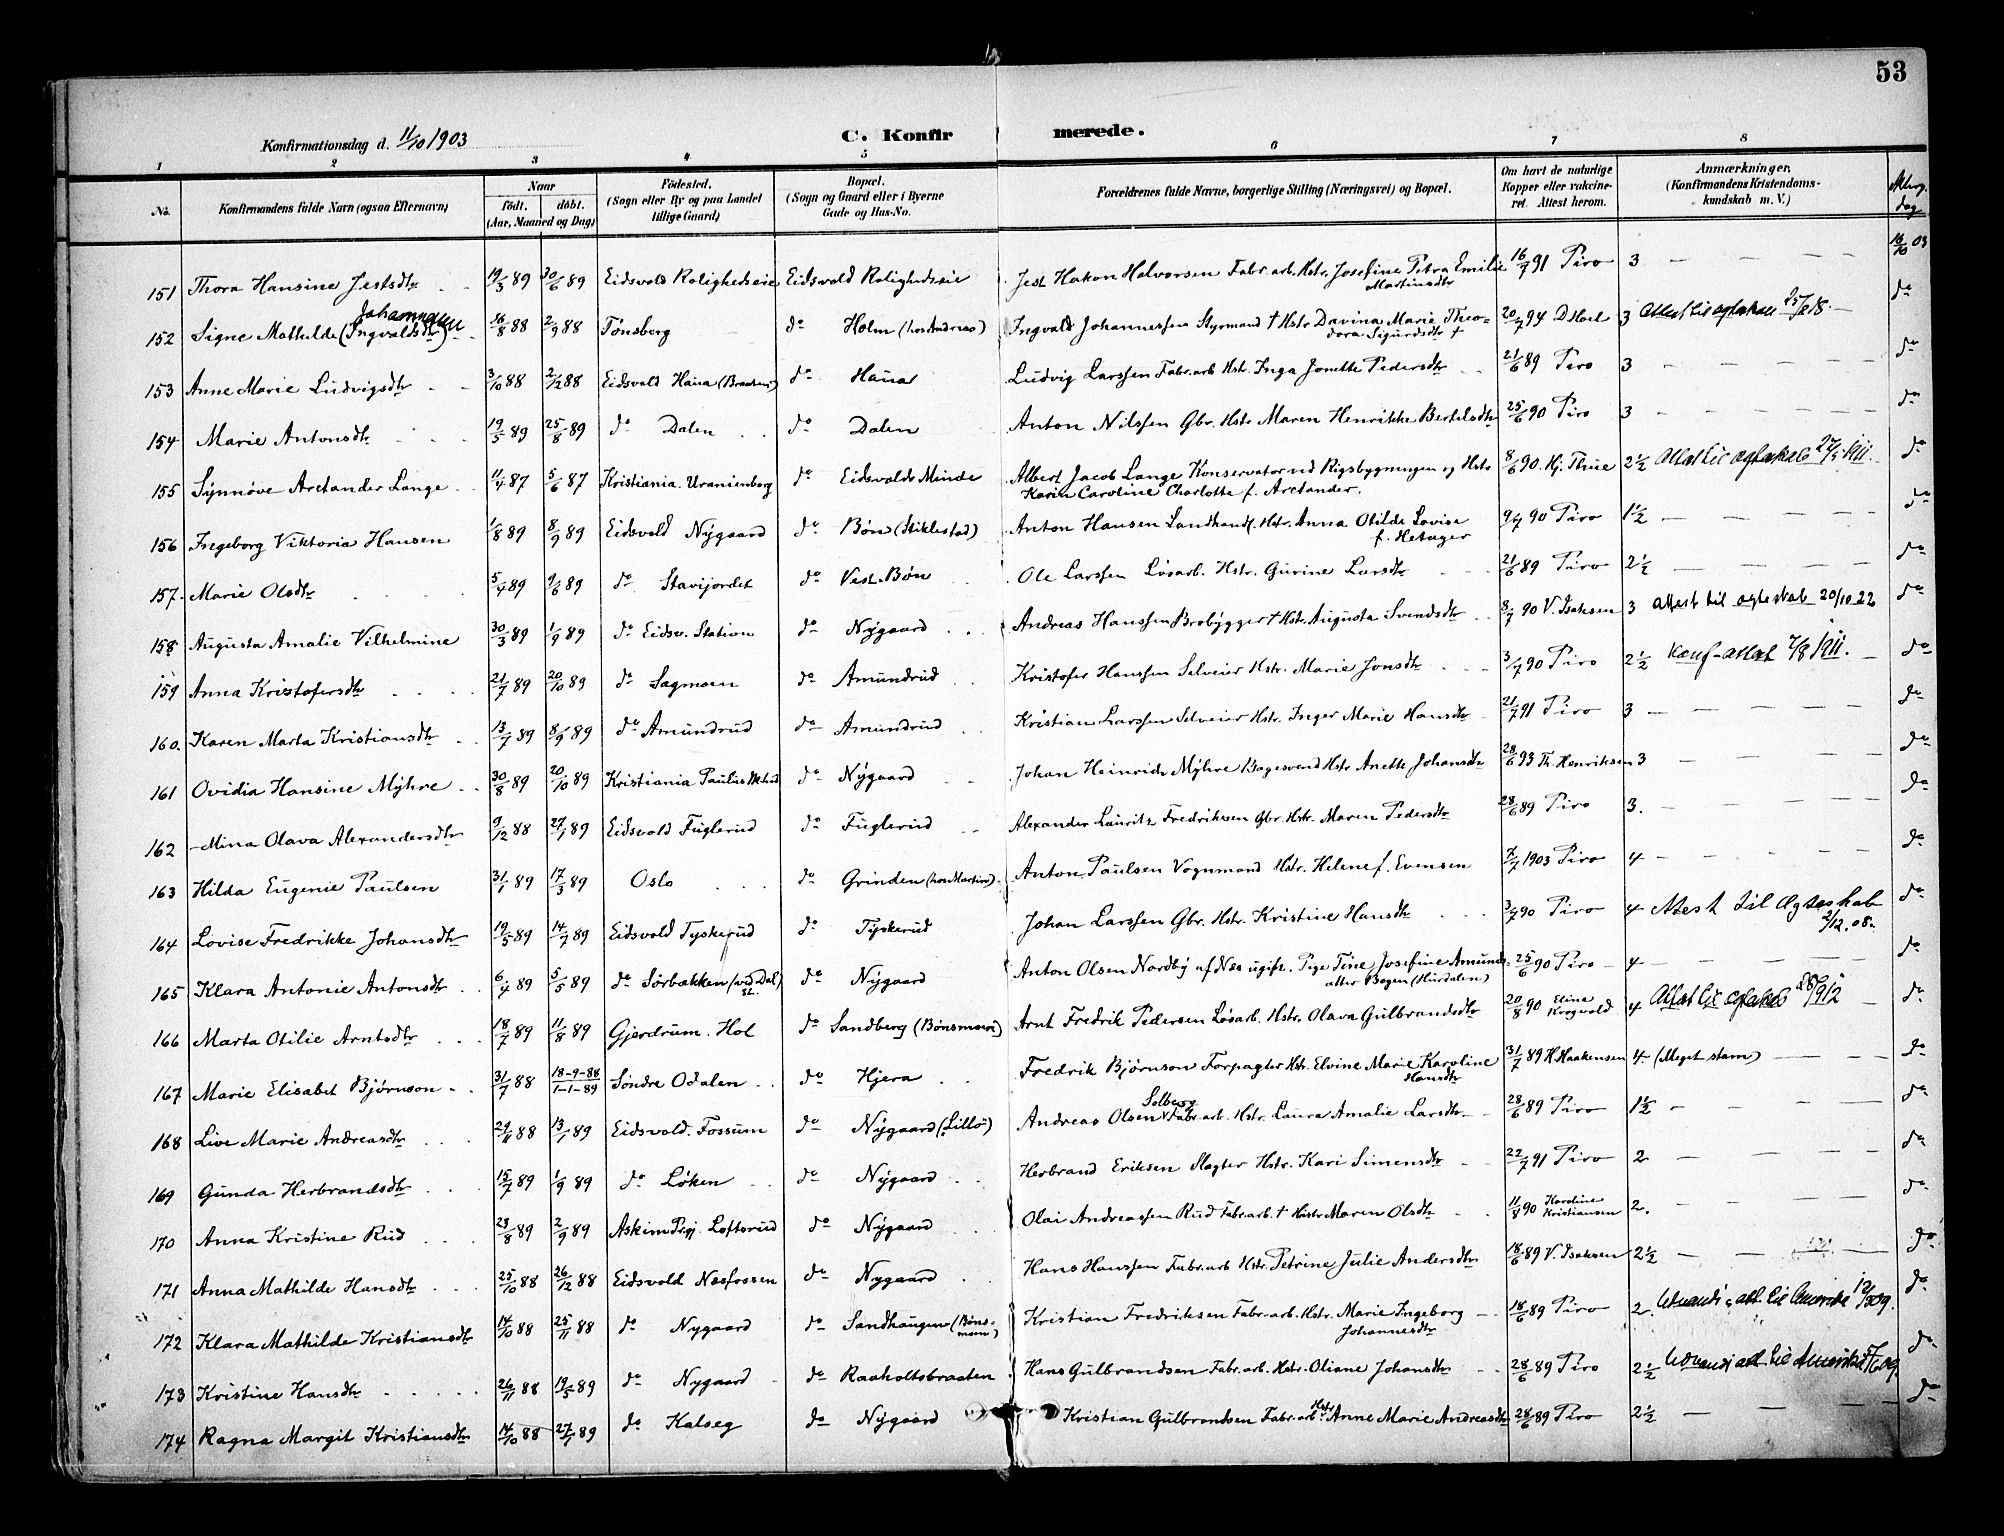 53
Konfirmationsdag d. 11/10 1903 C. Konfirmerede.
1 2 3 4 5 6 7 8
No. Konfirmandens fulde Navn (ogsaa Efternavn) Naar født, døbt. (Aar, Maaned og Dag) Fødested. (Sogn eller By og paa Landet tillige Gaard) Bopæl. (Sogn og Gaard eller i Byerne Gade og Hus-No. Forældrenes fulde Navne, borgerlige Stilling (Næringsvei) og Bopæl. Om havt de naturlige Kopper eller vakcineret. Attest herom. Anmærkninger. (Konfirmandens Kristendomskundskab m. V.)
151 Thora Hansine Jestsdtr 19/3 89 30/6 89 Eidsvold Rolighedseie Eidsvold Rolighedseie Jest Hakon Halvorsen Fabr.arb. Hstr. Josefine Petra Emilie Martinsdtr 16/7 91 Piro 3 16/10 03
152 Signe Mathilde (Ingvaldsdtr) Johannesen 16/8 88 2/9 88 Tønsberg do Holm (hos Andreas) Ingvald Johannessen Styrmand † Hstr Davina Marie Theodora Sigurdsdtr † 20/7 94 3 do
153 Anne Marie Ludvigsdtr 3/10 88 2/12 88 Eidsvold Haua do Haua Ludvig Larssen Fabr.arb Hstr. Inga Jonette Pedersdtr 21/6 89 Piro 3 do
154 Marie Antonsdtr 19/5 89 25/8 89 do Dalen do Dalen Anton Nilssen Gbr. Hstr Maren Henrikke Bertelsdtr 25/6 90 Piro 3 do
155 Synnøve Arctander Lange 11/4 87 5/6 87 Kristiania. Uranienborg do Eidsvolds Minde Albert Jacob Lange Konservator ved Rigsbygningen og Hstr Karin Caroline Charlotte f. Arctander. 8/6 90. Hj. Thue 2½ do
156 Ingeborg Viktoria Hansen 1/8 89 8/9 89 Eidsvold Nygaard do Bøn (Stiklestad) Anton Hansen Landhandl. Hstr. Anna Otilde Lovise f. Hetager 9/7 90 Piro 1½ do
157. Marie Olsdtr 5/4 89 9/6 89 do Stavijordet do Vest. Bøn Ole Larssen Løsarb. Hstr. Gurine Larsdtr 21/6 89 Piro 2½ do
158 Augusta Amalie Vilhelmine 30/3 89 1/9 89 do Eidsv. Station do Nygaard Andreas Hanssen Brobygger † Hstr. Augusta Svendsdtr 8/7 90 V. Isaksen 3 Attest til ægteskab 20/10 22 do
159 Anna Kristofersdtr 21/7 89 20/10 89 do Sagmoen do Amundrud Kristofer Hanssen Selveier Hstr. Marie Jonsdtr 3/7 90 Piro 2½ do
160. Karen Marta Kristiansdtr 13/7 89 8/9 89 do Amundrud do Amundrud Kristian Larssen Selveier Hstr. Inger Marie Hansdtr 21/7 91 Piro 3 do
161 Ovidia Hansine Myhre 30/8 89 20/10 89 Kristiania Paulus do Nygaard Johan Heinrich Myhre Bagesvend Hstr Anette Johansdtr 28/6 93 Th. Henriksen 3 do
162 Mina Olava Alexandersdtr 9/12 88 27/1 89 Eidsvold Fuglerud do Fuglerud Alexander Lauritz Fredriksen Gbr. Hstr. Maren Pedersdtr 28/6 89 Piro 3. do
163 Hilda Eugenie Paulsen 31/1 89 17/3 89 Oslo do Grinden (hos Martin) Anton Paulsen Vognmand Hstr. Helene f. Evensen 7/7 1903 Piro 4 do
164 Lovise Fredrikke Johansdtr 19/5 89 14/7 89 Eidsvold Tyskerud do Tyskerud Johan Larssen Gbr. Hstr. Kristine Hansdtr 3/7 90 Piro 4 Attest til Ægteskab 2/12. 08. do
165 Klara Antonie Antonsdtr 6/4 89 5/5 89 do Sørbakken (ved Dal St.) do Nygaard Anton Olsen Nordby af Næs ugift. Pige Tine Josefine Amundsdatter Bogen (Hurdalen) 25/6 90 Piro 4 do
166 Marta Otilie Arntsdtr 18/7 89 11/8 89 Gjerdrum. Hol do Sandberg (Bønsmoen) Arnt Fredrik Pedersen Løsarb. Hstr. Olava Gulbrandsdtr 20/8 90 Eline Krogvold 4 do
167 Marie Elisabet Bjørnson 31/7 88 18-9-88 1-1-89 Søndre Odalen do Hjera Fredrik Bjørnson Forpagter Hstr. Elvine Marie Karoline Hansdtr 31/7 89 H. Haakensen 4. (Meget stam) do
168 Live Marie Andreasdtr 29/11 88 13/1 89 Eidsvold. Fossum do Nygaard (Lillo) Andreas Olsen Solberg Fabr.arb. Hstr. Laura Amalie Larsdtr 28/6 89 Piro 1½ do
169 Gunda Herbrandsdtr 15/7 89 1/9 89 do Løken do Nygaard Herbrand Eriksen Slagter Hstr. Kari Simensdtr 22/7 91 Piro 2 do
170 Anna Kristine Rud 23/8 89 2/9 89 Askim Prgj. Loftsrud do Nygaard Olai Andreassen Rud Fabr.arb. † Hustr Maren Olsdtr 11/8 90 Karoline Kristiansen 2. do
171 Anna Mathilde Hansdtr 25/10 88 26/12 88 Eidsvold Næsfossen do Nygaard Hans Hanssen Fabr.arb Hstr. Petrine Julie Andersdtr 18/6 89 V. Isaksen 2½ do
172 Klara Mathilde Kristiansdtr 14/10 88 25/11 88 do Nygaard do Sandhaugen (Bønsmoen) Kristian Fredriksen Fabr.arb. Hstr. Marie Ingeborg Johannesdtr 18/6 89 Piro 2 do
173 Kristine Hansdtr 26/11 88 19/5 89 do Nygaard do Raaholtsbraaten Hans Gulbrandsen Fabr.arb. Hstr. Oliane Johansdtr 28/6 89 Piro 2½ do
174 Ragna Margit Kristiansdtr 14/10 88 27/1 89 do Kalseg do Nygaard Kristian Gulbrandsen Fabr.arb Hstr Anne Marie Andreasdtr 28/6 89 Piro 2½ do